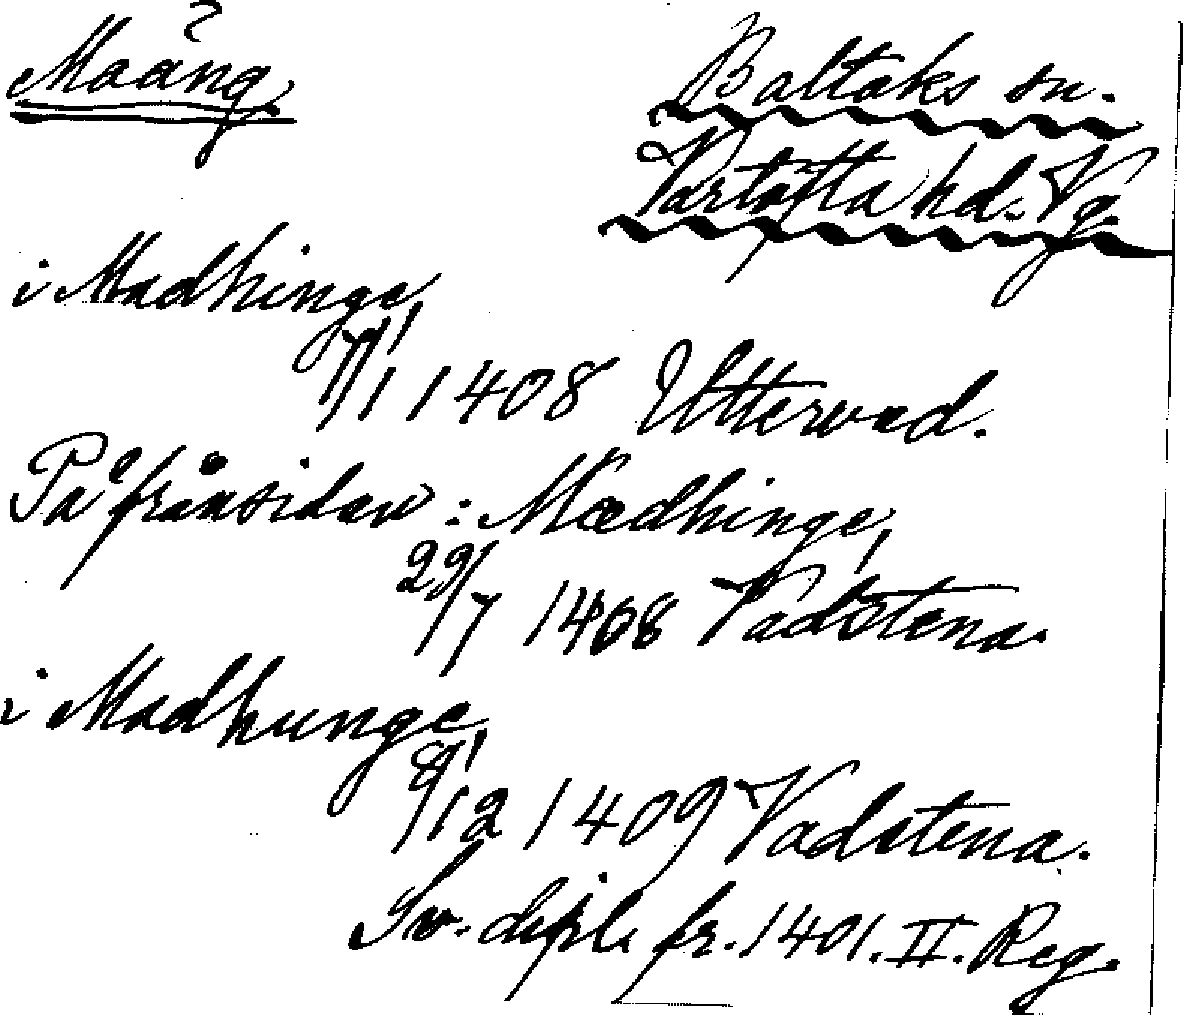 ?
Maång.
Baltaks sn.
Vartofta hd. Vg.
i Madhinge,
1/11 1408 Uttervad.
På frånsidan: Mædhinge,
29/7 1408 Vadstena.
i Madhunge,
8/12 1409 Vadstena.
Sv. dipl. fr. 1401. II. Reg.